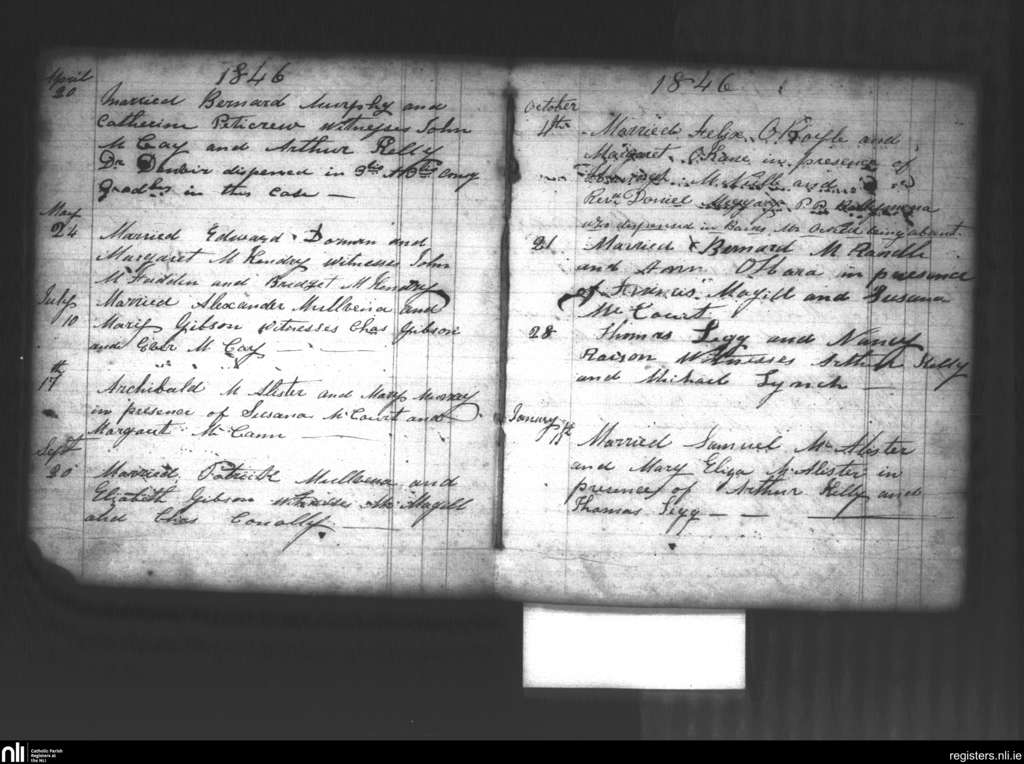 1846
April
20
Married Bernard Murphy and
Catherine Peticrew witnesses John
McCay and Arthur Kelly
Dr Denvir dispensed in 3tio
in this case —
May
24
Married Edward Dornan and
Margaret McKendry witnesses John
McFadden and Bridget McKendry
July
10
Married Alexander Mullvenna and
Mary Gibson witnesses Chas Gibson
and McCay
17th
Archibald McAlister and Mary Murray
in presence of Susana McCourt and
Margaret McCann
Sept
20
Married Patrick Mullvenna and
Elizabeth Gibson witnesses Magill
and Chas Conolly
1846
October
4th
Married Felix O'Boyle and
Margaret O'Kane in presence of
and
Revd Daniel P.P. Ballymena
was dispensed in Banns, being absent.
21
Married Bernard McRandle
and Ann O'Hara in presence
of Francis Magill and Susana
McCourt
28
Thomas Legg and Nancy
Raison Witnesses Arthur Kelly
and Michael Lynch
January
Married Samuel McAlister
and Mary Eliza McAlister in
presence of Arthur Kelly and
Thomas Legg
nli
Catholic Parish
Registers at
the NLI
registers.nli.ie